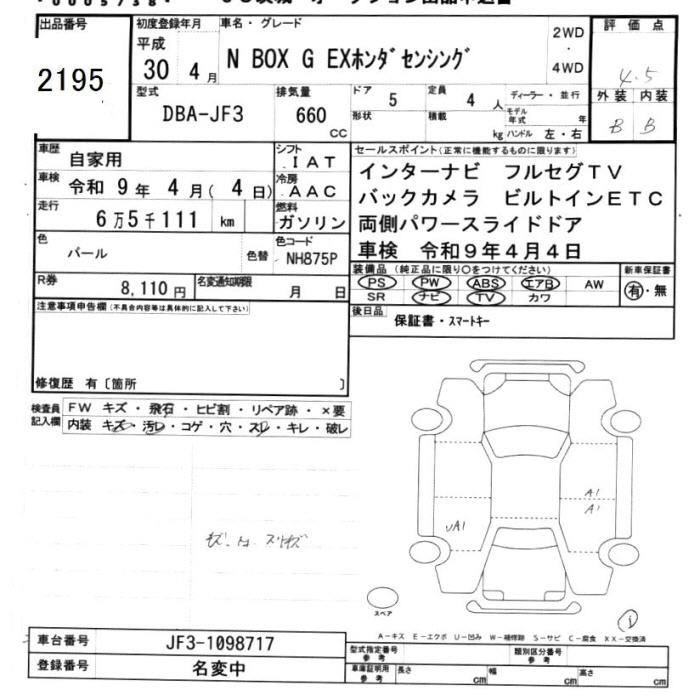 出品番号 初度登録年月 車名・グレード 2WD 評価点
平成
2195 30 4月 N BOX G EXホンダセンシング ・ 4.5
4WD
型式 排気量 ドア 5 定員 4人 ディーラー・並行 外装 内装
DBA-JF3 660 CC 形状 積載 kg モデル年式 年 B B
ハンドル 左・右
車歴 自家用 シフト IAT セールスポイント(正常に機能するものに限ります)
車検 令和9年4月(4日) 冷房 AAC インターナビ フルセグTV
走行 6万5千111 km 燃料 ガソリン バックカメラ ビルトインETC
両側パワースライドドア
色 パール 色替 色コード NH875P 車検 令和9年4月4日
R券 8,110円 名変通知期限 月 日 装備品(純正品に限り○をつけてください) 新車保証書
PS PW ABS エアB AW 有・無
SR ナビ TV カワ
注意事項申告欄(不具合内容等は具体的に記入して下さい) 後日品 保証書・スマートキー
修復歴 有〔箇所 〕
検査員 FW キズ・飛石・ヒビ割・リペア跡・×要
記入欄 内装 キズ・汚レ・コゲ・穴・スレ・キレ・破レ
A1
A1
UA1
スペア
A-キズ E-エクボ U-凹み W-補修跡 S-サビ C-腐食 XX-交換済
車台番号 JF3-1098717 型式指定番号 参考 類別区分番号 参考
登録番号 名変中 車庫証明用 参考 長さ cm 幅 cm 高さ cm